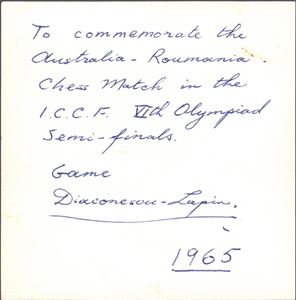 To commemorate the
Australia - Roumania
Chess Match in the
I.C.C.F. VIth Olympiad
Semi-finals.
Game
Diaconescu - Lapin.
1965